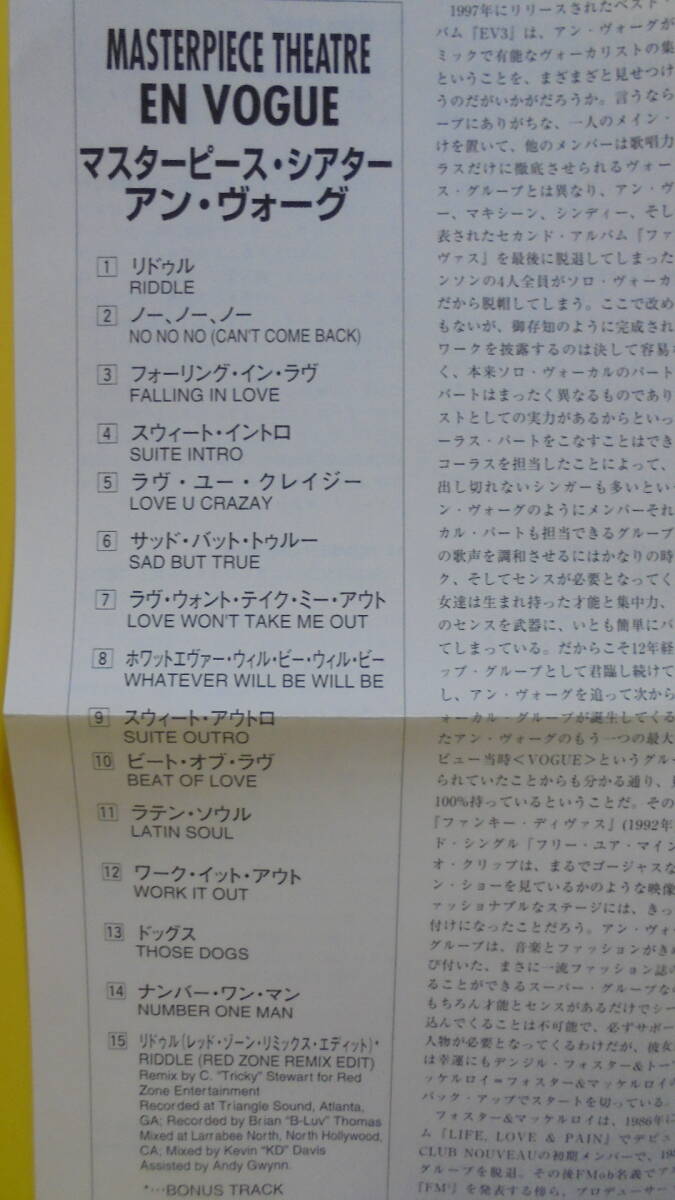 MASTERPIECE THEATRE
EN VOGUE
マスターピース・シアター
アン・ヴォーグ
1 リドゥル
RIDDLE
2 ノー、ノー、ノー
NO NO NO (CAN'T COME BACK)
3 フォーリング・イン・ラヴ
FALLING IN LOVE
4 スウィート・イントロ
SUITE INTRO
5 ラヴ・ユー・クレイジー
LOVE U CRAZAY
6 サッド・バット・トゥルー
SAD BUT TRUE
7 ラヴ・ウォント・テイク・ミー・アウト
LOVE WON'T TAKE ME OUT
8 ホワットエヴァー・ウィル・ビー・ウィル・ビー
WHATEVER WILL BE WILL BE
9 スウィート・アウトロ
SUITE OUTRO
10 ビート・オブ・ラヴ
BEAT OF LOVE
11 ラテン・ソウル
LATIN SOUL
12 ワーク・イット・アウト
WORK IT OUT
13 ドッグス
THOSE DOGS
14 ナンバー・ワン・マン
NUMBER ONE MAN
15 リドゥル(レッド・ゾーン・リミックス・エディット)*
RIDDLE (RED ZONE REMIX EDIT)
Remix by C. "Tricky" Stewart for Red
Zone Entertainment
Recorded at Triangle Sound, Atlanta,
GA; Recorded by Brian "B-Luv" Thomas
Mixed at Larrabee North, North Hollywood,
CA; Mixed by Kevin "KD" Davis
Assisted by Andy Gwynn.
*…BONUS TRACK
1997年にリリースされたベスト・
バム『EV3』は、アン・ヴォーグが
ミックで有能なヴォーカリストの集
ということを、まざまざと見せつけ
うのだがいかがだろうか。言うなら
ープにありがちな、一人のメイン・
けを置いて、他のメンバーは歌唱力
ラスだけに徹底させられるヴォー
ス・グループとは異なり、アン・ヴ
ー、マキシーン、シンディー、そし
表されたセカンド・アルバム『ファ
ヴァス』を最後に脱退してしまった
ンソンの4人全員がソロ・ヴォーカ
だから脱帽してしまう。ここで改め
もないが、御存知のように完成され
ワークを披露するのは決して容易な
く、本来ソロ・ヴォーカルのパート
パートはまったく異なるものであり
ストとしての実力があるからといっ
ーラス・パートをこなすことはでき
コーラスを担当したことによって、
出し切れないシンガーも多いとい
ン・ヴォーグのようにメンバーそれ
カル・パートも担当できるグループ
の歌声を調和させるにはかなりの時
ク、そしてセンスが必要となってく
女達は生まれ持った才能と集中力、
のセンスを武器に、いとも簡単にパ
てしまっている。だからこそ12年経
ップ・グループとして君臨し続けて
し、アン・ヴォーグを追って次から
ォーカル・グループが誕生してくる
たアン・ヴォーグのもう一つの最大
ビュー当時<VOGUE>というグル
られていたことからも分かる通り、
100%持っているということだ。その
『ファンキー・ディヴァス』(1992年
ド・シングル「フリー・ユア・マイン
オ・クリップは、まるでゴージャスな
ン・ショーを見ているかのような映像
ァッショナブルなステージには、きっ
付けになったことだろう。アン・ヴォ
グループは、音楽とファッションがき
び付いた、まさに一流ファッション誌の
ることができるスーパー・グループな
もちろん才能とセンスがあるだけでシー
込んでくることは不可能で、必ずサポー
人物が必要となってくるわけだが、彼女
は幸運にもデンジル・フォスター&トー
ッケルロイ=フォスター&マッケルロイの
バック・アップでスタートを切っている。
フォスター&マッケルロイは、1986年に
ム『LIFE, LOVE & PAIN』でデビュ
CLUB NOUVEAUの初期メンバーで、19
グループを脱退。その後FMob名義でア
『FM²』を発表する傍ら、プロデューサー